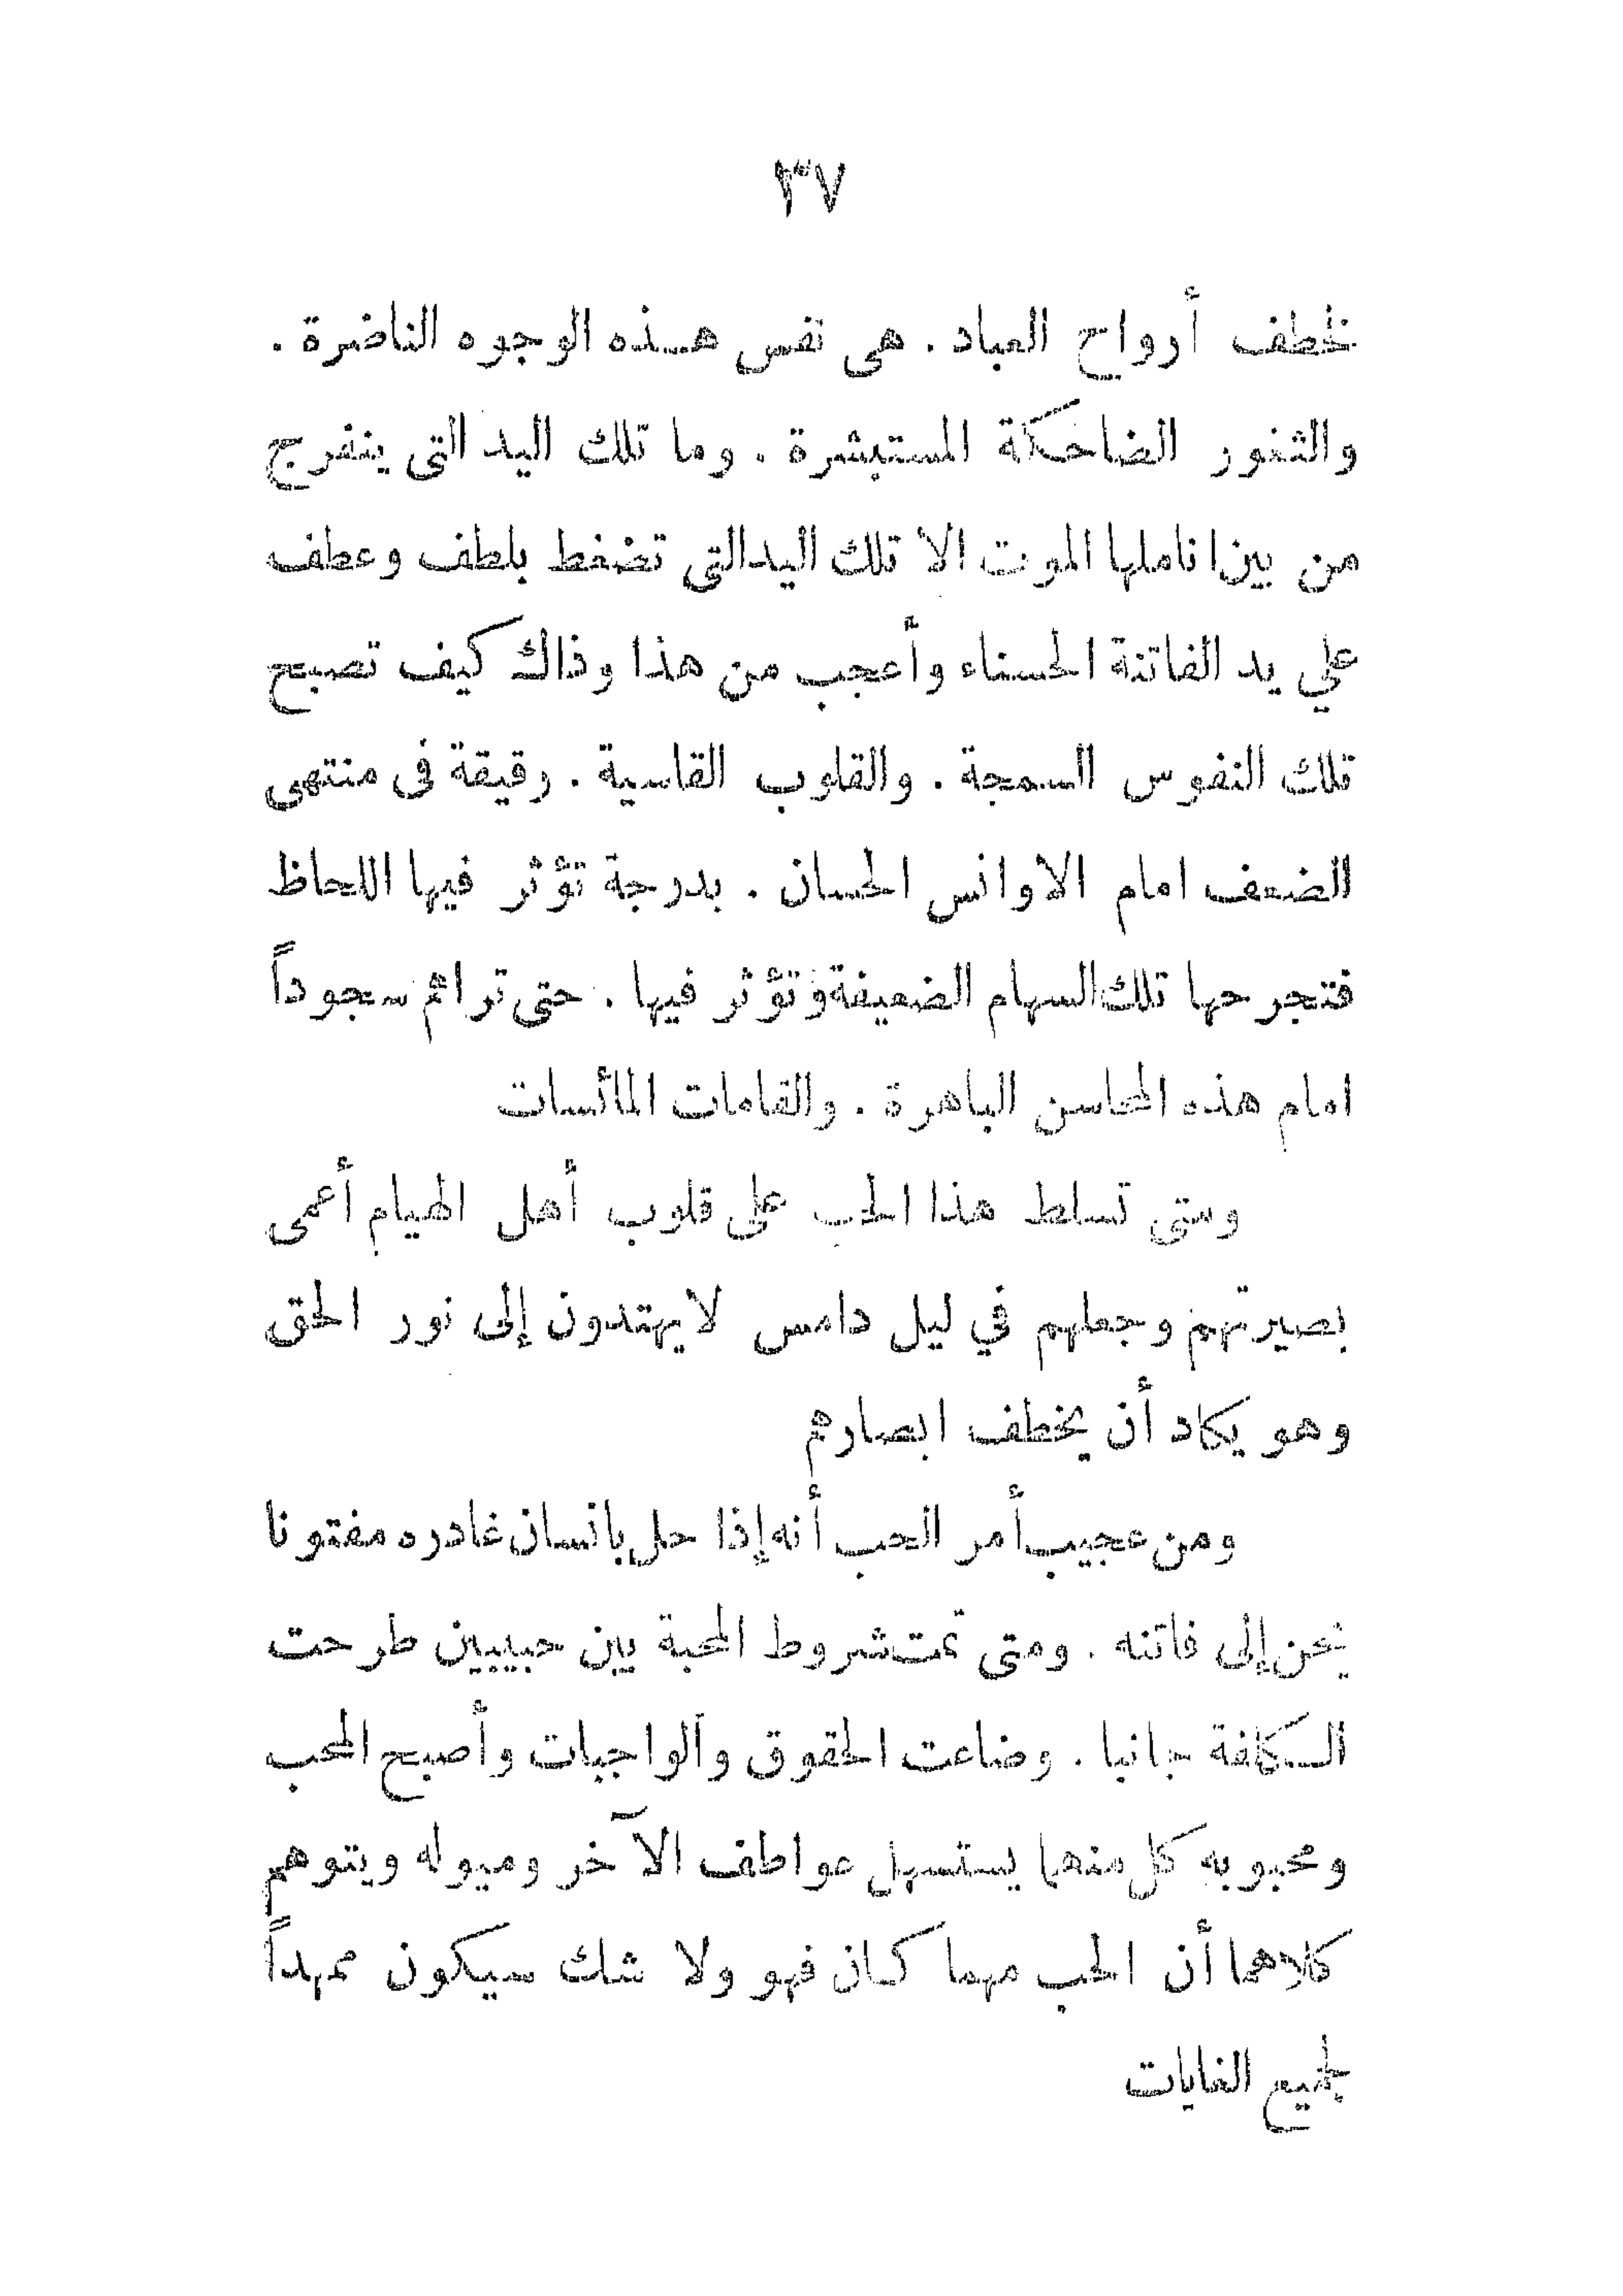 ٣٧
لخطف أرواح العباد . هى نفس هـذه الوجوه الناضرة .
والثغور الضاحكة المستبشرة . وما تلك اليد التى ينفرج
من بين اناملها الموت الا تلك اليد التي تضغط بلطف وعطف
علي يد الفاتنة الحسناء وأعجب من هذا وذاك كيف تصبح
تلك النفوس السمجة . والقلوب القاسية . رقيقة فى منتهى
الضعف امام الاوانس الحسان . بدرجة تؤثر فيها اللحاظ
فتجرحها تلك السهام الضعيفة وتؤثر فيها . حتى تراهم سجوداً
امام هذه المحاسن الباهرة . والقامات المائسات
ومتى تسلط هذا الحب على قلوب أهل الهيام أعمى
بصيرتهم وجعلهم في ليل دامس لايهتدون إلى نور الحق
وهو يكاد أن يخطف ابصارهم
ومن عجيب أمر الحب أنه إذا حل بانسان غادره مفتونا
يحن إلى فاتنه . ومتى تمت شروط المحبة بين حبيبين طرحت
الـكلفة جانبا . وضاعت الحقوق والواجبات وأصبح المحب
ومحبوبه كل منهما يستسهل عواطف الآخر وميوله ويتوهم
كلاهما أن الحب مهما كان فهو ولا شك سيكون ممهداً
لجميع الغايات